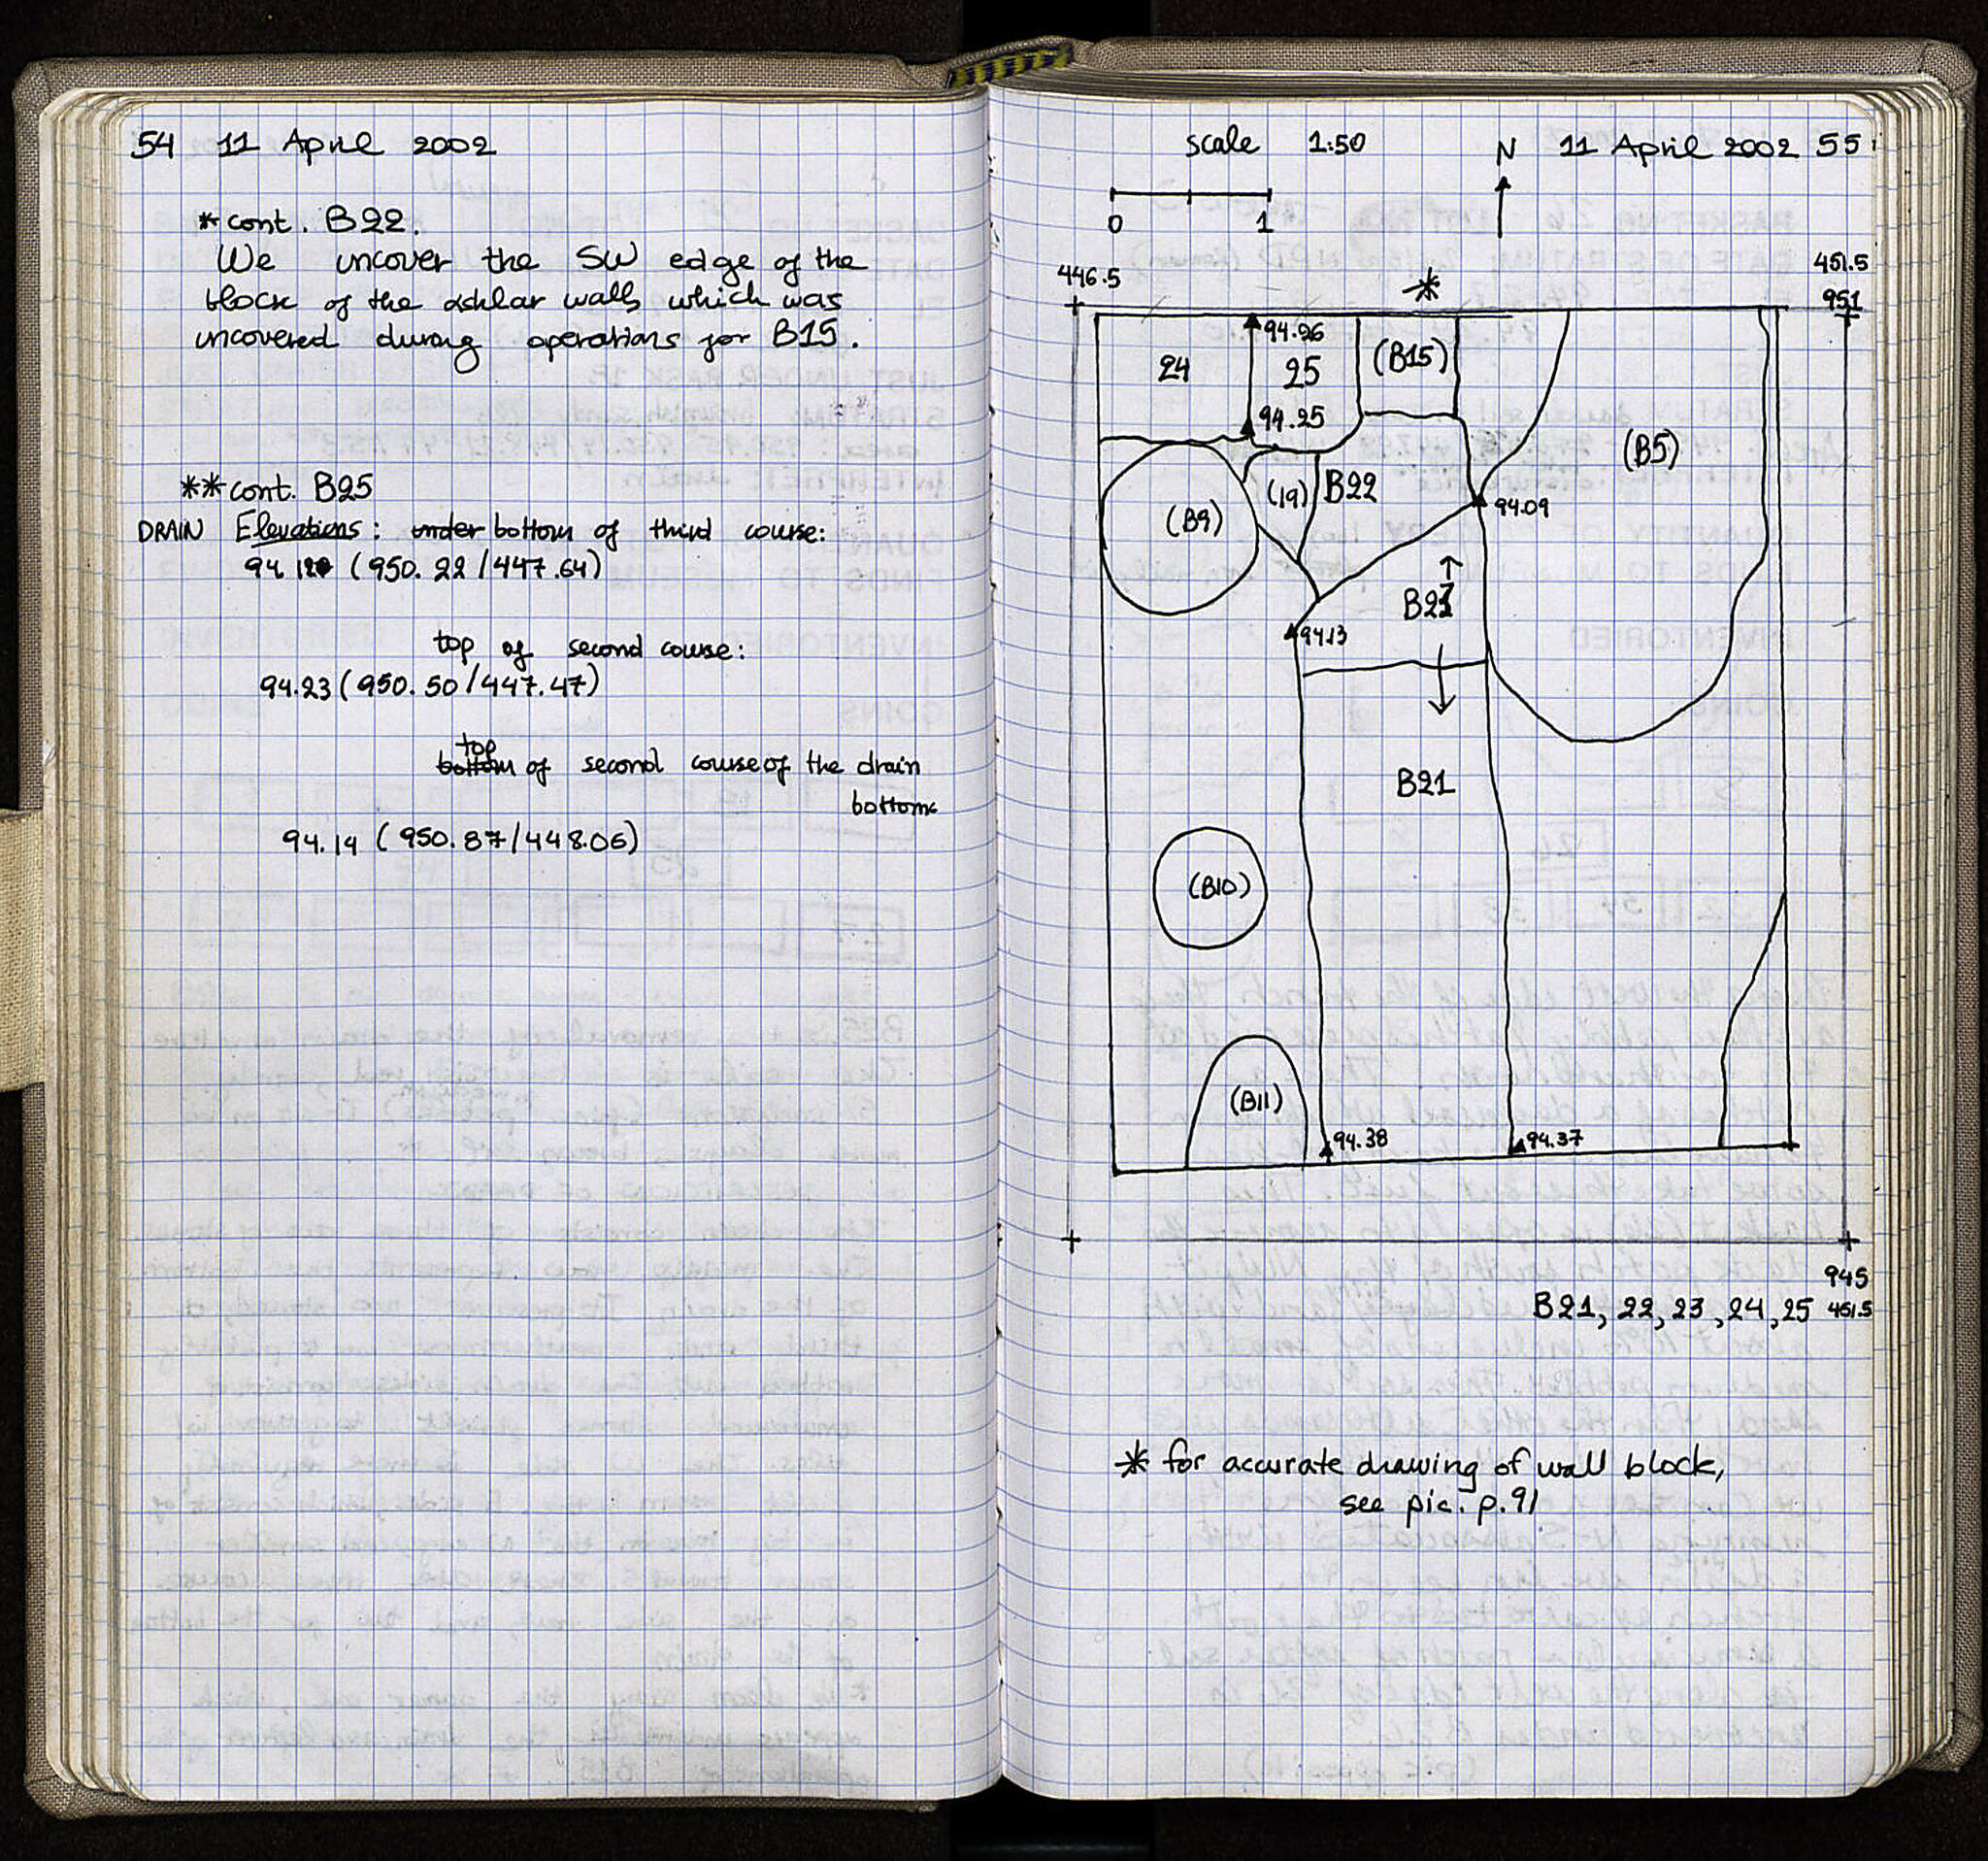 54 11 April 2002
* cont. B22.
We uncover the SW edge of the
block of the ashlar walls which was
uncovered during operations for B15.
** cont. B25
DRAIN Elevations: under bottom of third course:
94.12 (950.22/447.64)
top of second course:
94.23 (950.50/447.47)
top
bottom of second course of the drain
bottoms
94.14 (950.87/448.06)
scale 1:50 N 11 April 2002 55
0 1
446.5 451.5
951
*
94.26
24 25 (B15)
94.25
(B5)
(19) B22
(B9) 94.09
B23
94.13
B21
(B10)
(B11)
94.38 94.37
945
B21, 22, 23, 24, 25 451.5
* for accurate drawing of wall block,
see pic. p. 91